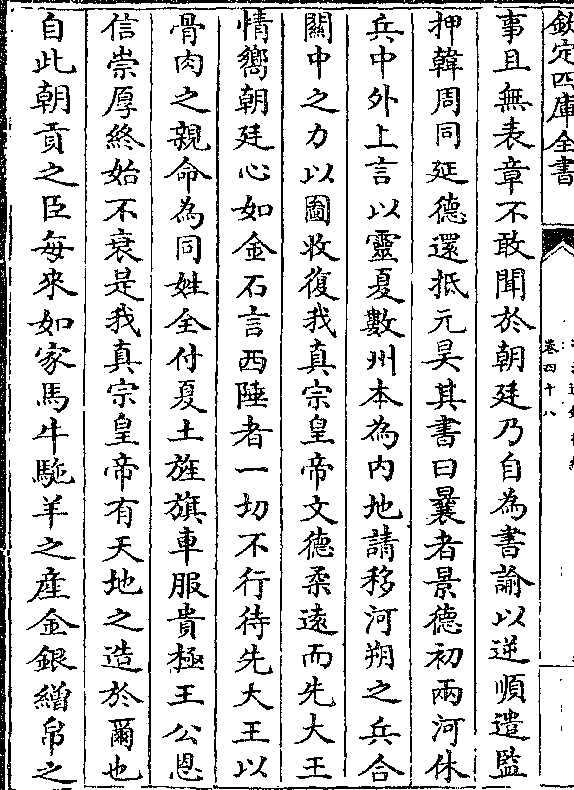 欽定四庫全書
卷四十八
事且無表章不敢聞於朝廷乃自為書諭以逆順遣監
押韓周同延德還抵元昊其書曰曩者景德初兩河休
兵中外上言以靈夏數州本為内地請移河朔之兵合
關中之力以圖收復我真宗皇帝文德柔遠而先大王
情嚮朝廷心如金石言西陲者一切不行待先大王以
骨肉之親命為同姓全付夏土旌旗車服貴極王公恩
信崇厚終始不衰是我真宗皇帝有天地之造於爾也
自此朝貢之臣每來如家馬牛駞羊之産金銀繒帛之